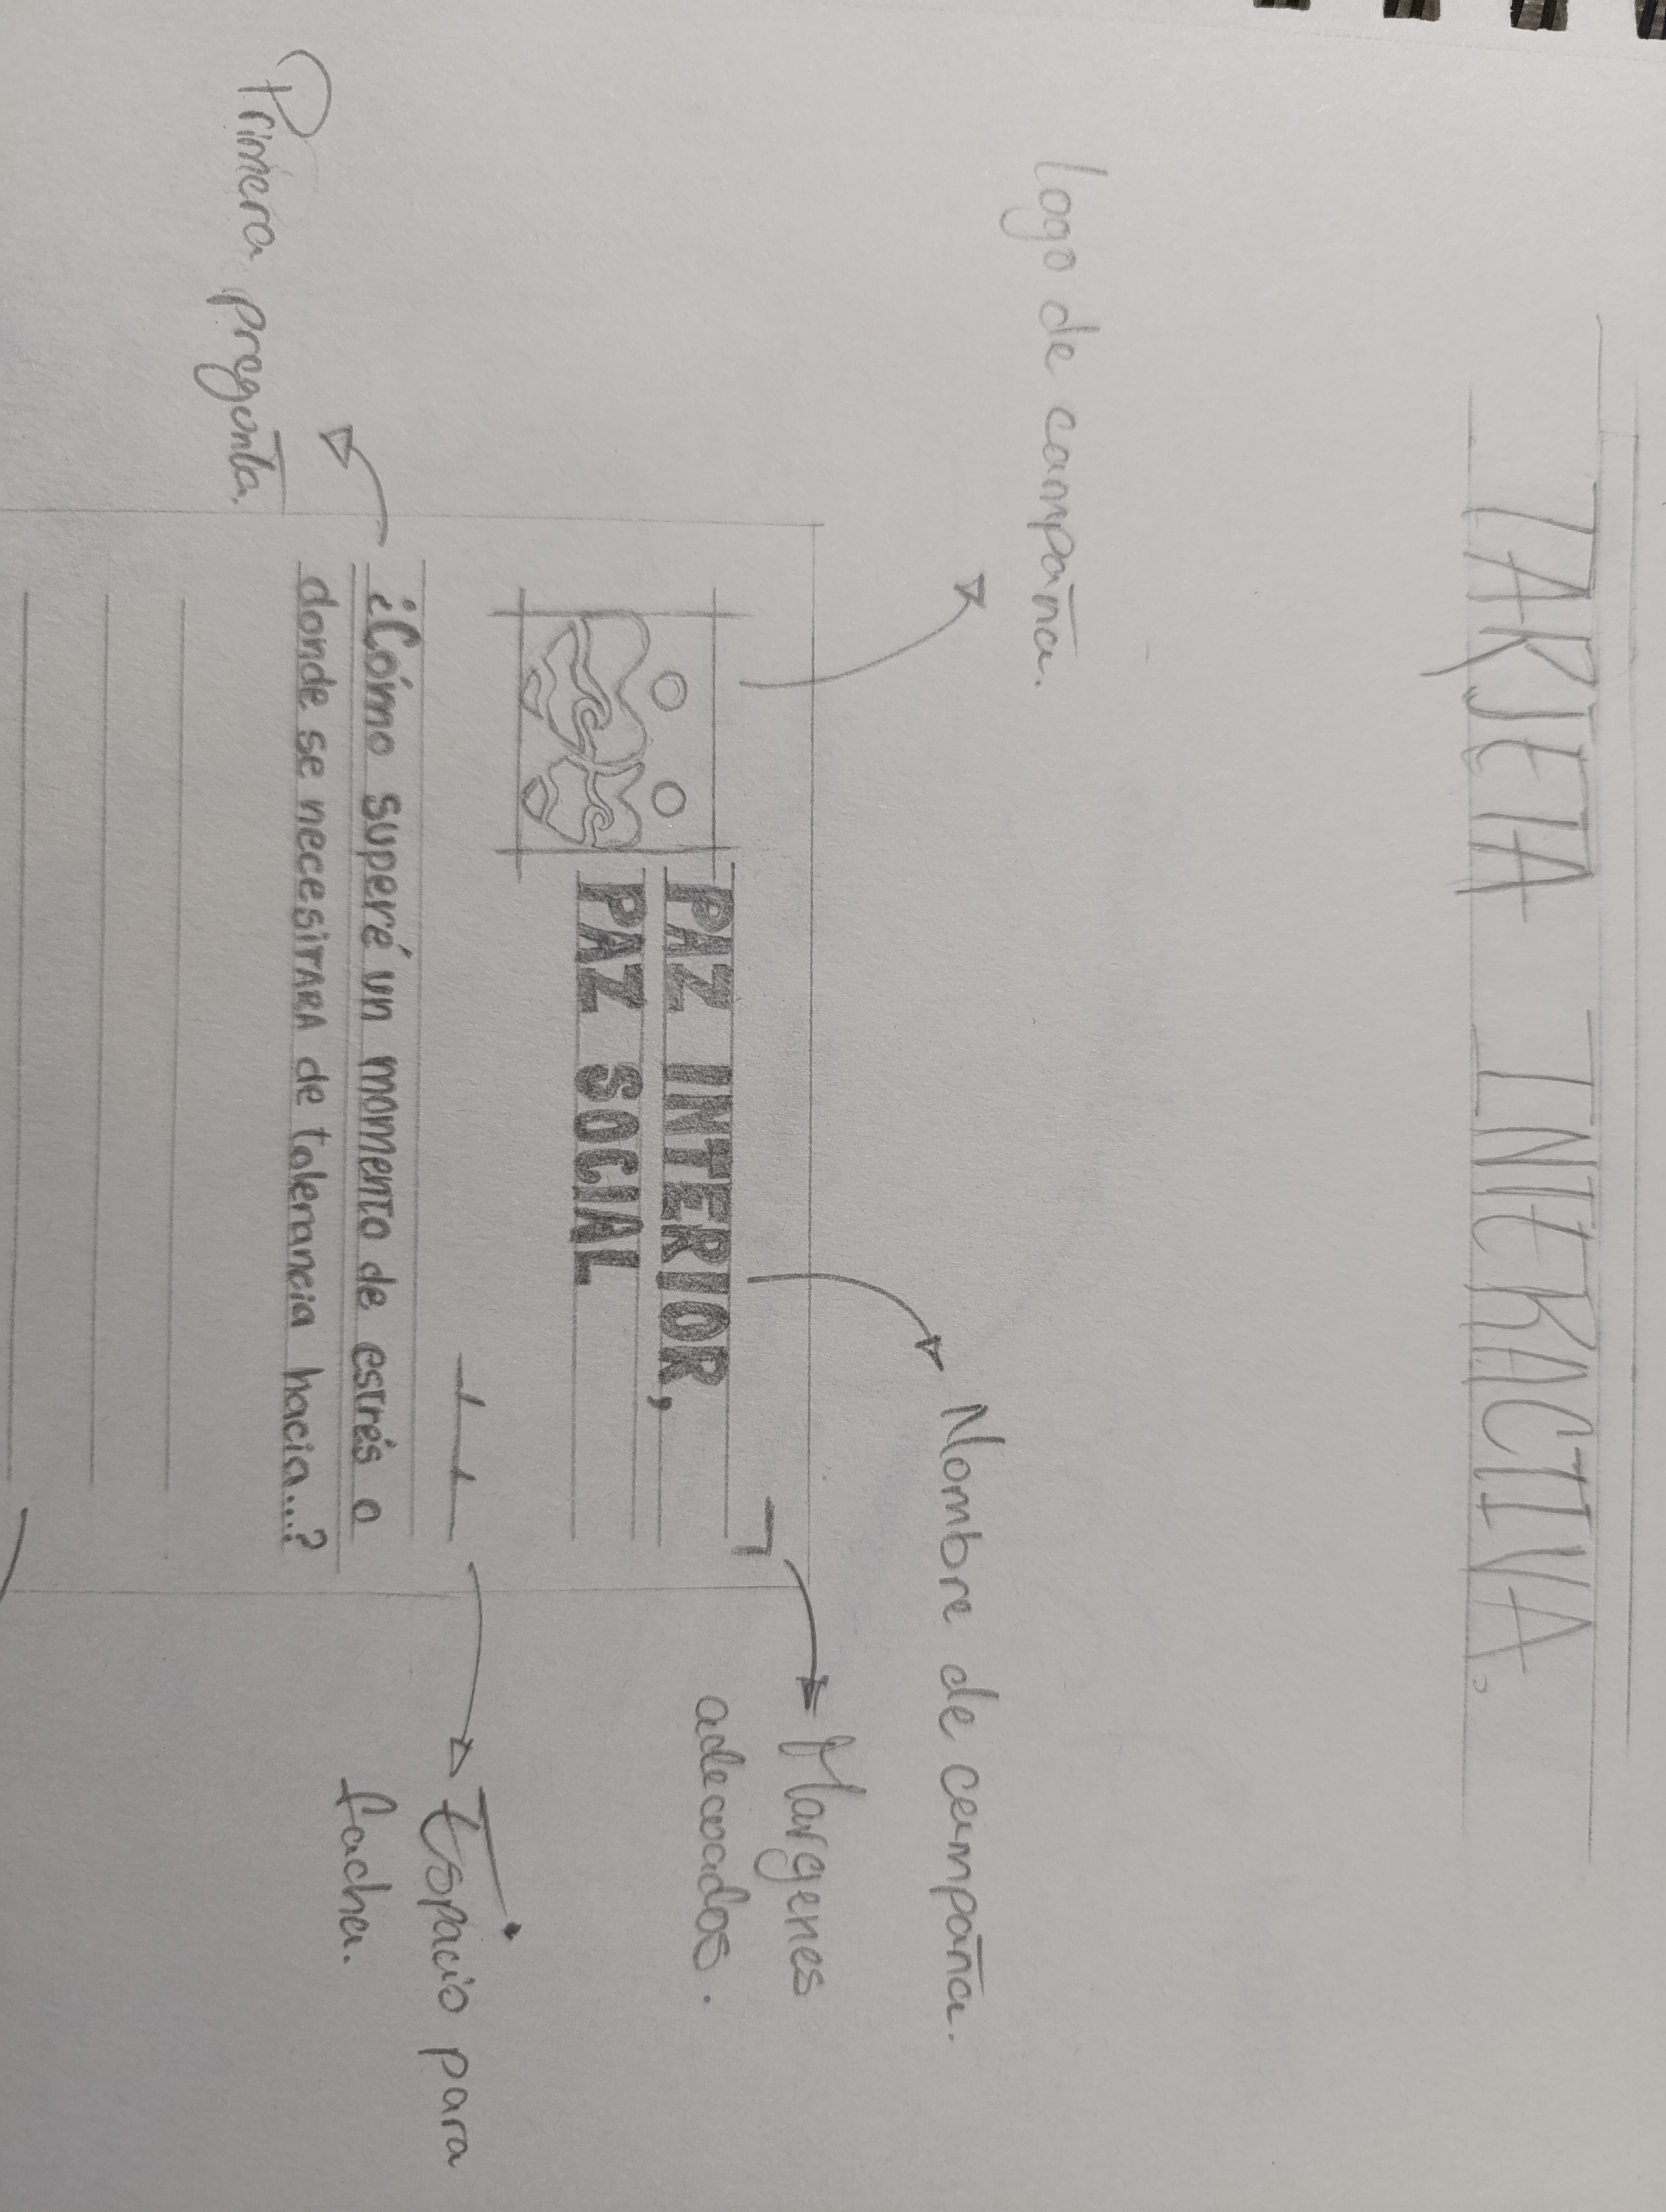 TARJETA INTERACTIVA.
logo de campaña.
Nombre de campaña.
Margenes
adecuados.
PAZ INTERIOR,
PAZ SOCIAL
Espacio para
facha.
¿Cómo superé un momento de estrés o
donde se necesitARA de tolerancia hacia...?
Primera pregunta.